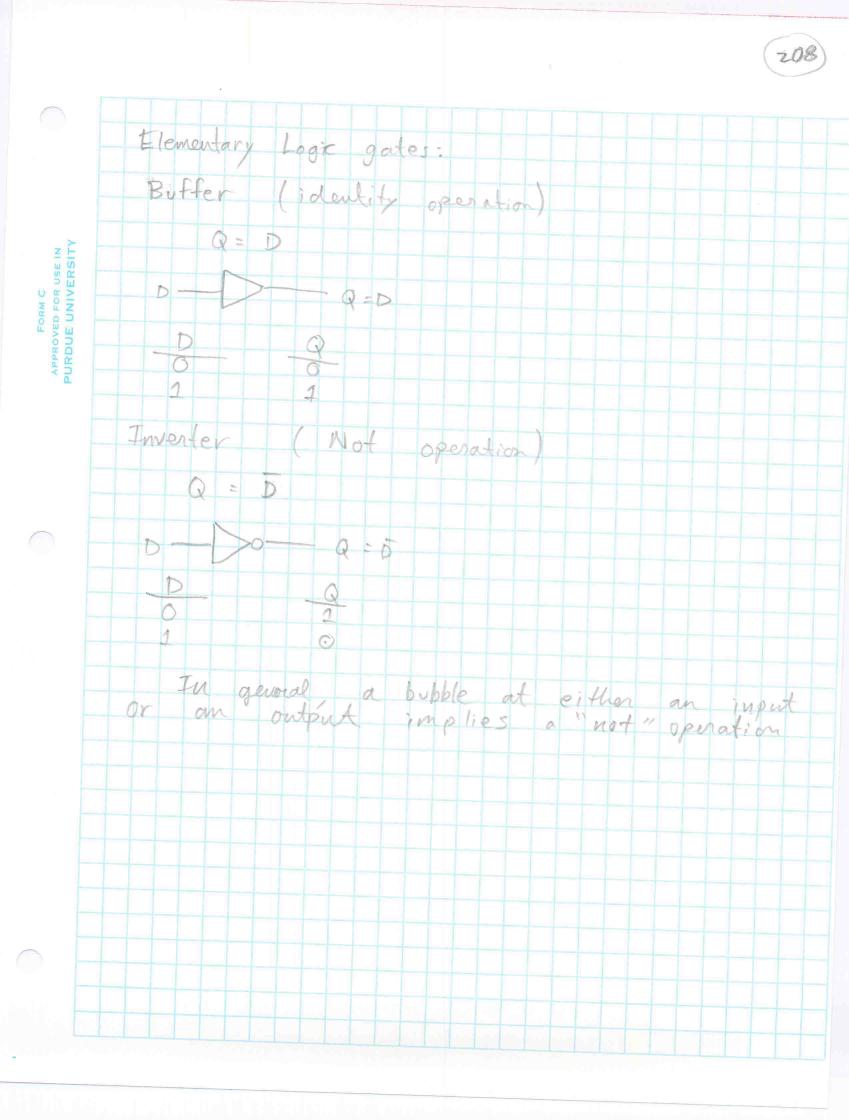 208
FORM C
APPROVED FOR USE IN
PURDUE UNIVERSITY
Elementary Logic gates:
Buffer (identity operation)
Q = D
D Q = D
D Q
0 0
1 1
Inverter (Not operation)
Q = D̅
D Q = D̅
D Q
0 1
1 0
In general, a bubble at either an input
or an output implies a "not" operation